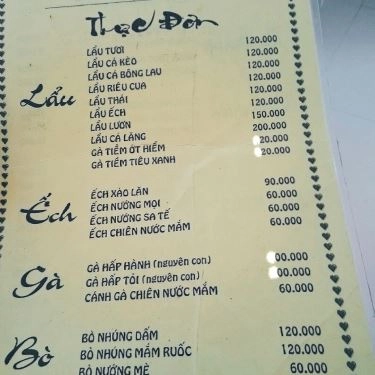 Thực Đơn
Lẩu
LẨU TƯƠI 120.000
LẨU CÁ KÈO 120.000
LẨU CÁ BÔNG LAU 120.000
LẨU RIÊU CUA 120.000
LẨU THÁI 120.000
LẨU ẾCH 120.000
LẨU LƯƠN 150.000
LẨU CÁ LĂNG 200.000
GÀ TIỀM ỚT HIỂM 20.000
GÀ TIỀM TIÊU XANH 20.000
Ếch
ẾCH XÀO LĂN 90.000
ẾCH NƯỚNG MỌI 60.000
ẾCH NƯỚNG SA TẾ 60.000
ẾCH CHIÊN NƯỚC MẮM 60.000
Gà
GÀ HẤP HÀNH (nguyên con) 00.000
GÀ HẤP TỎI (nguyên con) 00.000
CÁNH GÀ CHIÊN NƯỚC MẮM 60.000
Bò
BÒ NHÚNG DẤM 120.000
BÒ NHÚNG MẮM RUỐC 120.000
BÒ NƯỚNG MÈ 60.000